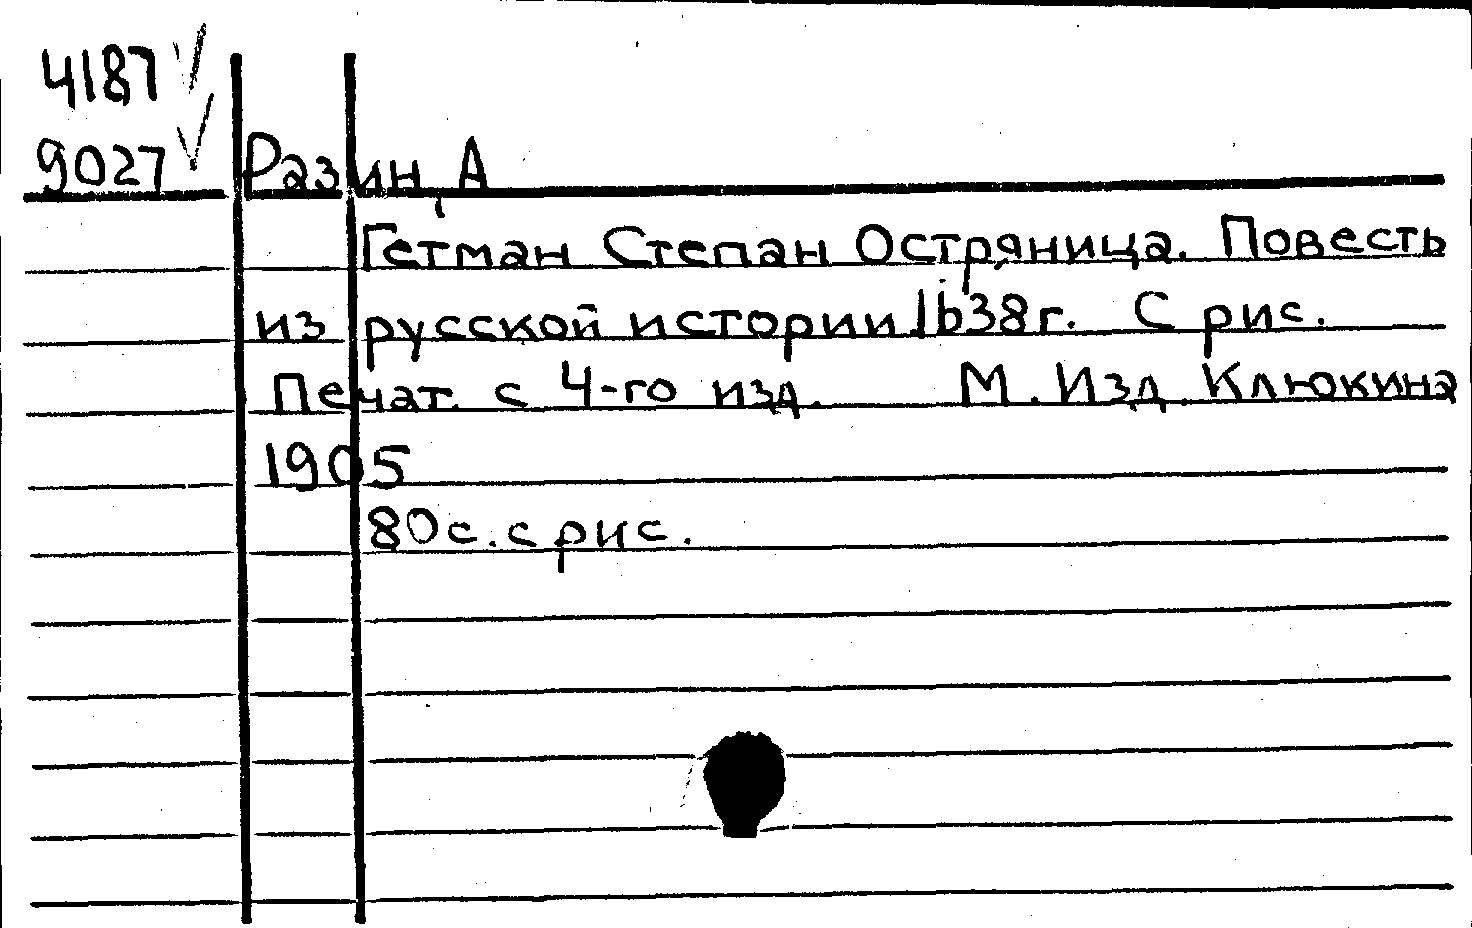 4187 √
9027 √ Разин, А
Гетман Степан Остряница. Повесть
из русской истории 1638 г. С рис.
Печат. с 4-го изд. М. Изд. Клюкина
1905
80 с. с рис.